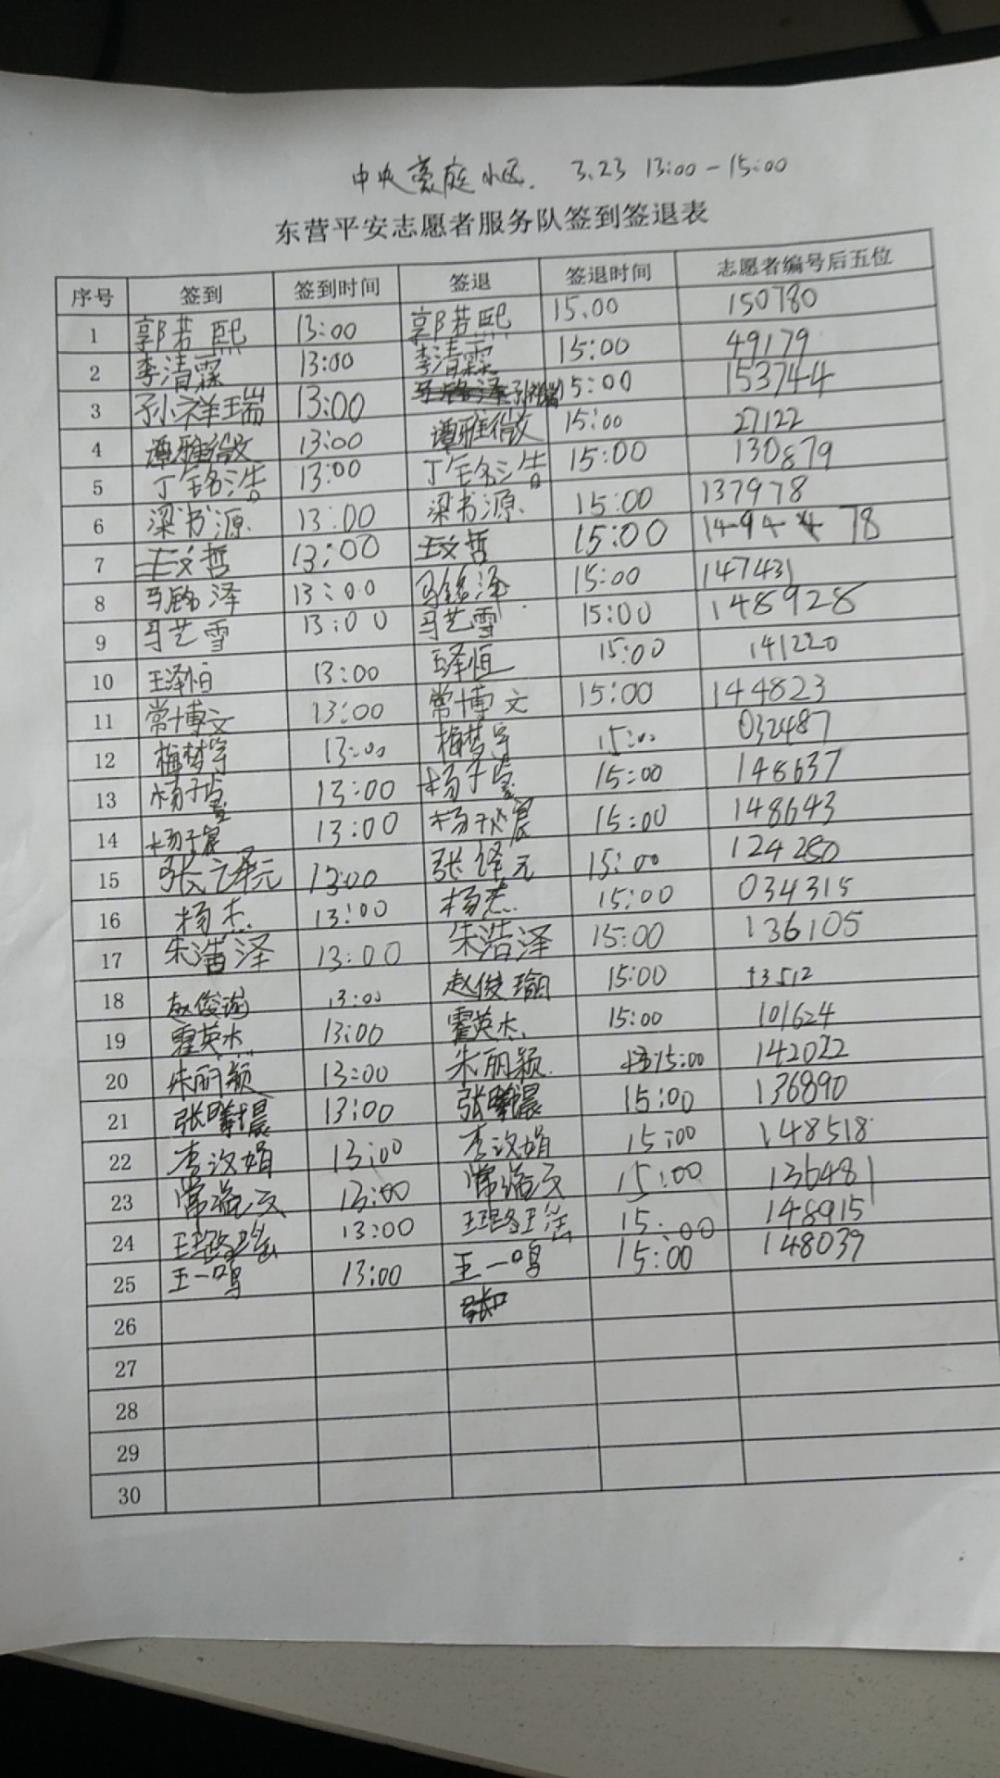 中央豪庭小区. 3.23 13:00-15:00
东营平安志愿者服务队签到签退表
序号 签到 签到时间 签退 签退时间 志愿者编号后五位
1 郭若熙 13:00 郭若熙 15.00 150780
2 李清霖 13:00 李清霖 15:00 49179
3 孙祥瑞 13:00 孙祥瑞 15:00 153744
4 谭雅微 13:00 谭雅微 15:00 27122
5 丁铭浩 13:00 丁铭浩 15:00 130879
6 梁书源. 13:00 梁书源. 15:00 137978
7 王文哲 13:00 王文哲 15:00 78
8 马铭泽 13:00 马铭泽 15:00 147431
9 马艺雪 13:00 马艺雪 15:00 148928
10 王泽恒 13:00 王泽恒 15:00 141220
11 常博文 13:00 常博文 15:00 144823
12 梅梦宇 13:00 梅梦宇 15:00 032487
13 杨子 13:00 杨子 15:00 148637
14 杨子宸 13:00 杨子宸 15:00 148643
15 张译元 13:00 张译元 15:00 124280
16 杨杰 13:00 杨杰. 15:00 034315
17 朱浩泽 13:00 朱浩泽 15:00 136105
18 赵俊瑜 13:00 赵俊瑜 15:00 13512
19 霍英杰 13:00 霍英杰. 15:00 101624
20 朱丽颖 13:00 朱丽颖. 15:00 142022
21 张曦晨 13:00 张曦晨 15:00 136890
22 李汶娟 13:00 李汶娟 15:00 148518
23 常溢文 13:00 常溢文 15:00 136481
24 王璐瑶 13:00 15:00 148915
25 王一鸣 13:00 王一鸣 15:00 148039
26
27
28
29
30